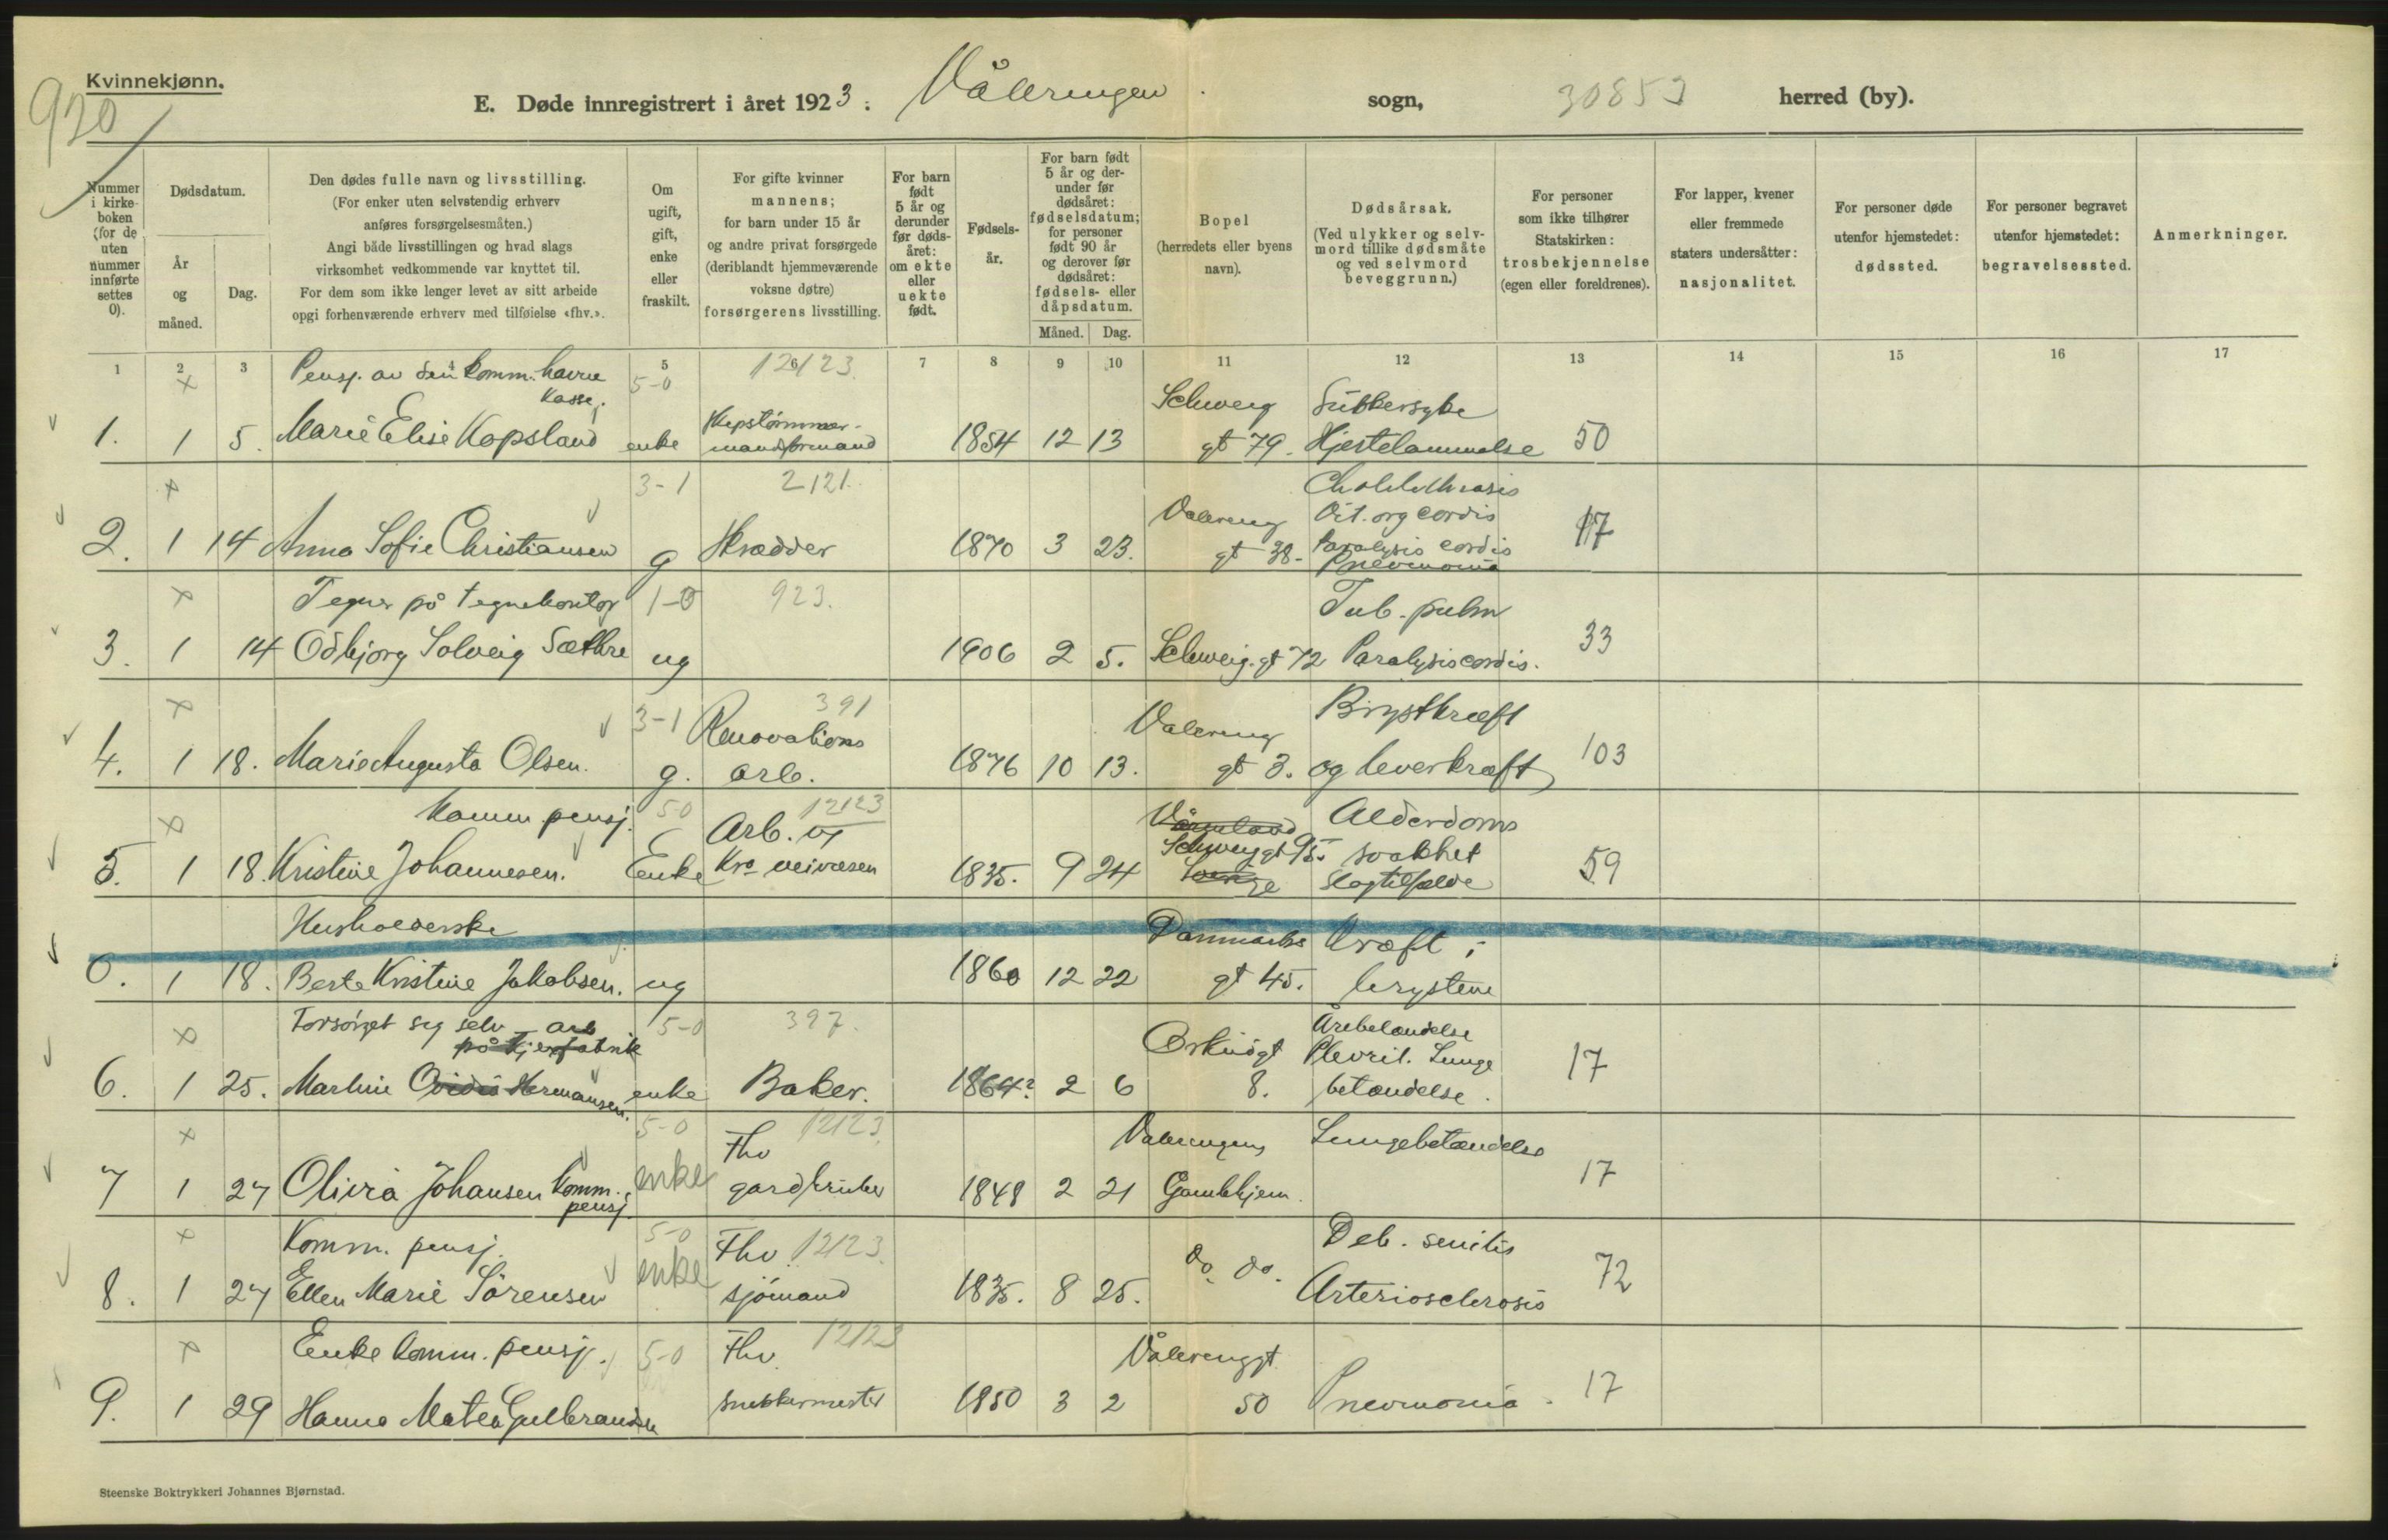 Kvinnekjønn.
920
E. Døde innregistrert i året 1923. Våleringen sogn, 30853 herred (by).
Nummer i kirkeboken (for de uten nummer innførte settes 0).
Dødsdatum.
År og måned.
Dag.
Den dødes fulle navn og livsstilling.
(For enker uten selvstendig erhverv
anføres forsørgelsesmåten.)
Angi både livsstillingen og hvad slags
virksomhet vedkommende var knyttet til.
For dem som ikke lenger levet av sitt arbeide
opgi forhenværende erhverv med tilføielse «fhv.».
Om ugift, gift, enke eller fraskilt.
For gifte kvinner
mannens;
for barn under 15 år
og andre privat forsørgede
(deriblandt hjemmeværende
voksne døtre)
forsørgerens livsstilling.
For barn født 5 år og derunder før dødsåret: om ekte eller uekte født.
Fødselsår.
For barn født 5 år og derunder før dødsåret: fødselsdatum; for personer født 90 år og derover før dødsåret: fødsels- eller dåpsdatum.
Måned. Dag.
Bopel
(herredets eller byens
navn).
Dødsårsak.
(Ved ulykker og selvmord tillike dødsmåte og ved selvmord beveggrunn.)
For personer
som ikke tilhører
Statskirken:
trosbekjennelse
(egen eller foreldrenes).
For lapper, kvener
eller fremmede
staters undersåtter:
nasjonalitet.
For personer døde
utenfor hjemstedet:
dødssted.
For personer begravet
utenfor hjemstedet:
begravelsessted.
Anmerkninger.
1 2 3 4 5 6 7 8 9 10 11 12 13 14 15 16 17
Pensj. av den komm. havne 5-0 12123
kasse. Schweig Sukkersyke
1. 1 5. Marie Elise Kopsland enke mandformand 1854 12 13 gt 79. Hjertelammelse 50
3-1 2121
Valereng Vit. org cordis
2. 1 14 Anna Sofie Christiansen g Skrædder 1870 3 23. gt 38. Paralysis cordis 17
Pneumonia
Tegner på tegnekontor 1-0 923. Tub. pulm
3. 1 14 Odbjørg Solveig Sæthre ug 1906 2 5. Schweig. gt 72 Paralysis cordis. 33
3-1 Renovations 391 Valereng Brystkræft
4. 1 18. Marie Augusta Olsen. g. arb. 1876 10 13. gt 3. og leverkræft 103
Komm. pensj. 50 Arb. v 12123 Värmland Alderdoms
5. 1 18. Kristine Johannesen. Enke Kra veivæsen 1835. 9 24 Schweig gt 95. svakhet 59
Sverge slagtilfælde
Husholderske Danmarks Kræft i
0. 1 18. Berte Kristine Jakobsen. ug 1860 12 22 gt 45. brystene
Forsørget seg selv - arb 5-0 397. Årebetændelse
Plevrit. Lunge
6. 1 25. Martine Hermansen. enke Baker. 1864? 2 6 8. betændelse. 17
5-0 Fhv 12123 Valerengens Lungebetændelse
7 1 27 Olivia Johansen Komm. pensj. enke gardbruker 1848 2 21 Gamlehjem. 17
Komm. pensj. 5-0 Fhv. 12123 Deb. senilis
8. 1 27 Ellen Marie Sörensen enke sjømand 1835. 8 25. do. do. Arteriosclerosis 72
Enke Komm. pensj. 5-0 Fhv. 12123 Vålerenggt
9. 1 29 Hanna Matea Gulbrandsen snekkermester 1850 3 2 50 Pneumonia. 17
Steenske Boktrykkeri Johannes Bjørnstad.